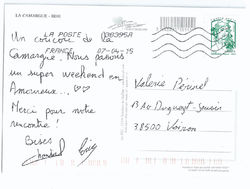 LA CAMARGUE - BEDE
LA POSTE 00395A
FRANCE 07-04-15
Un coucou de la
Camargue. Nous passons
un super weekend en
Amoureux...
Merci pour notre
rencontre!
Bises
Valérie Périnel
13 Av Duquesne
38500 Voiron